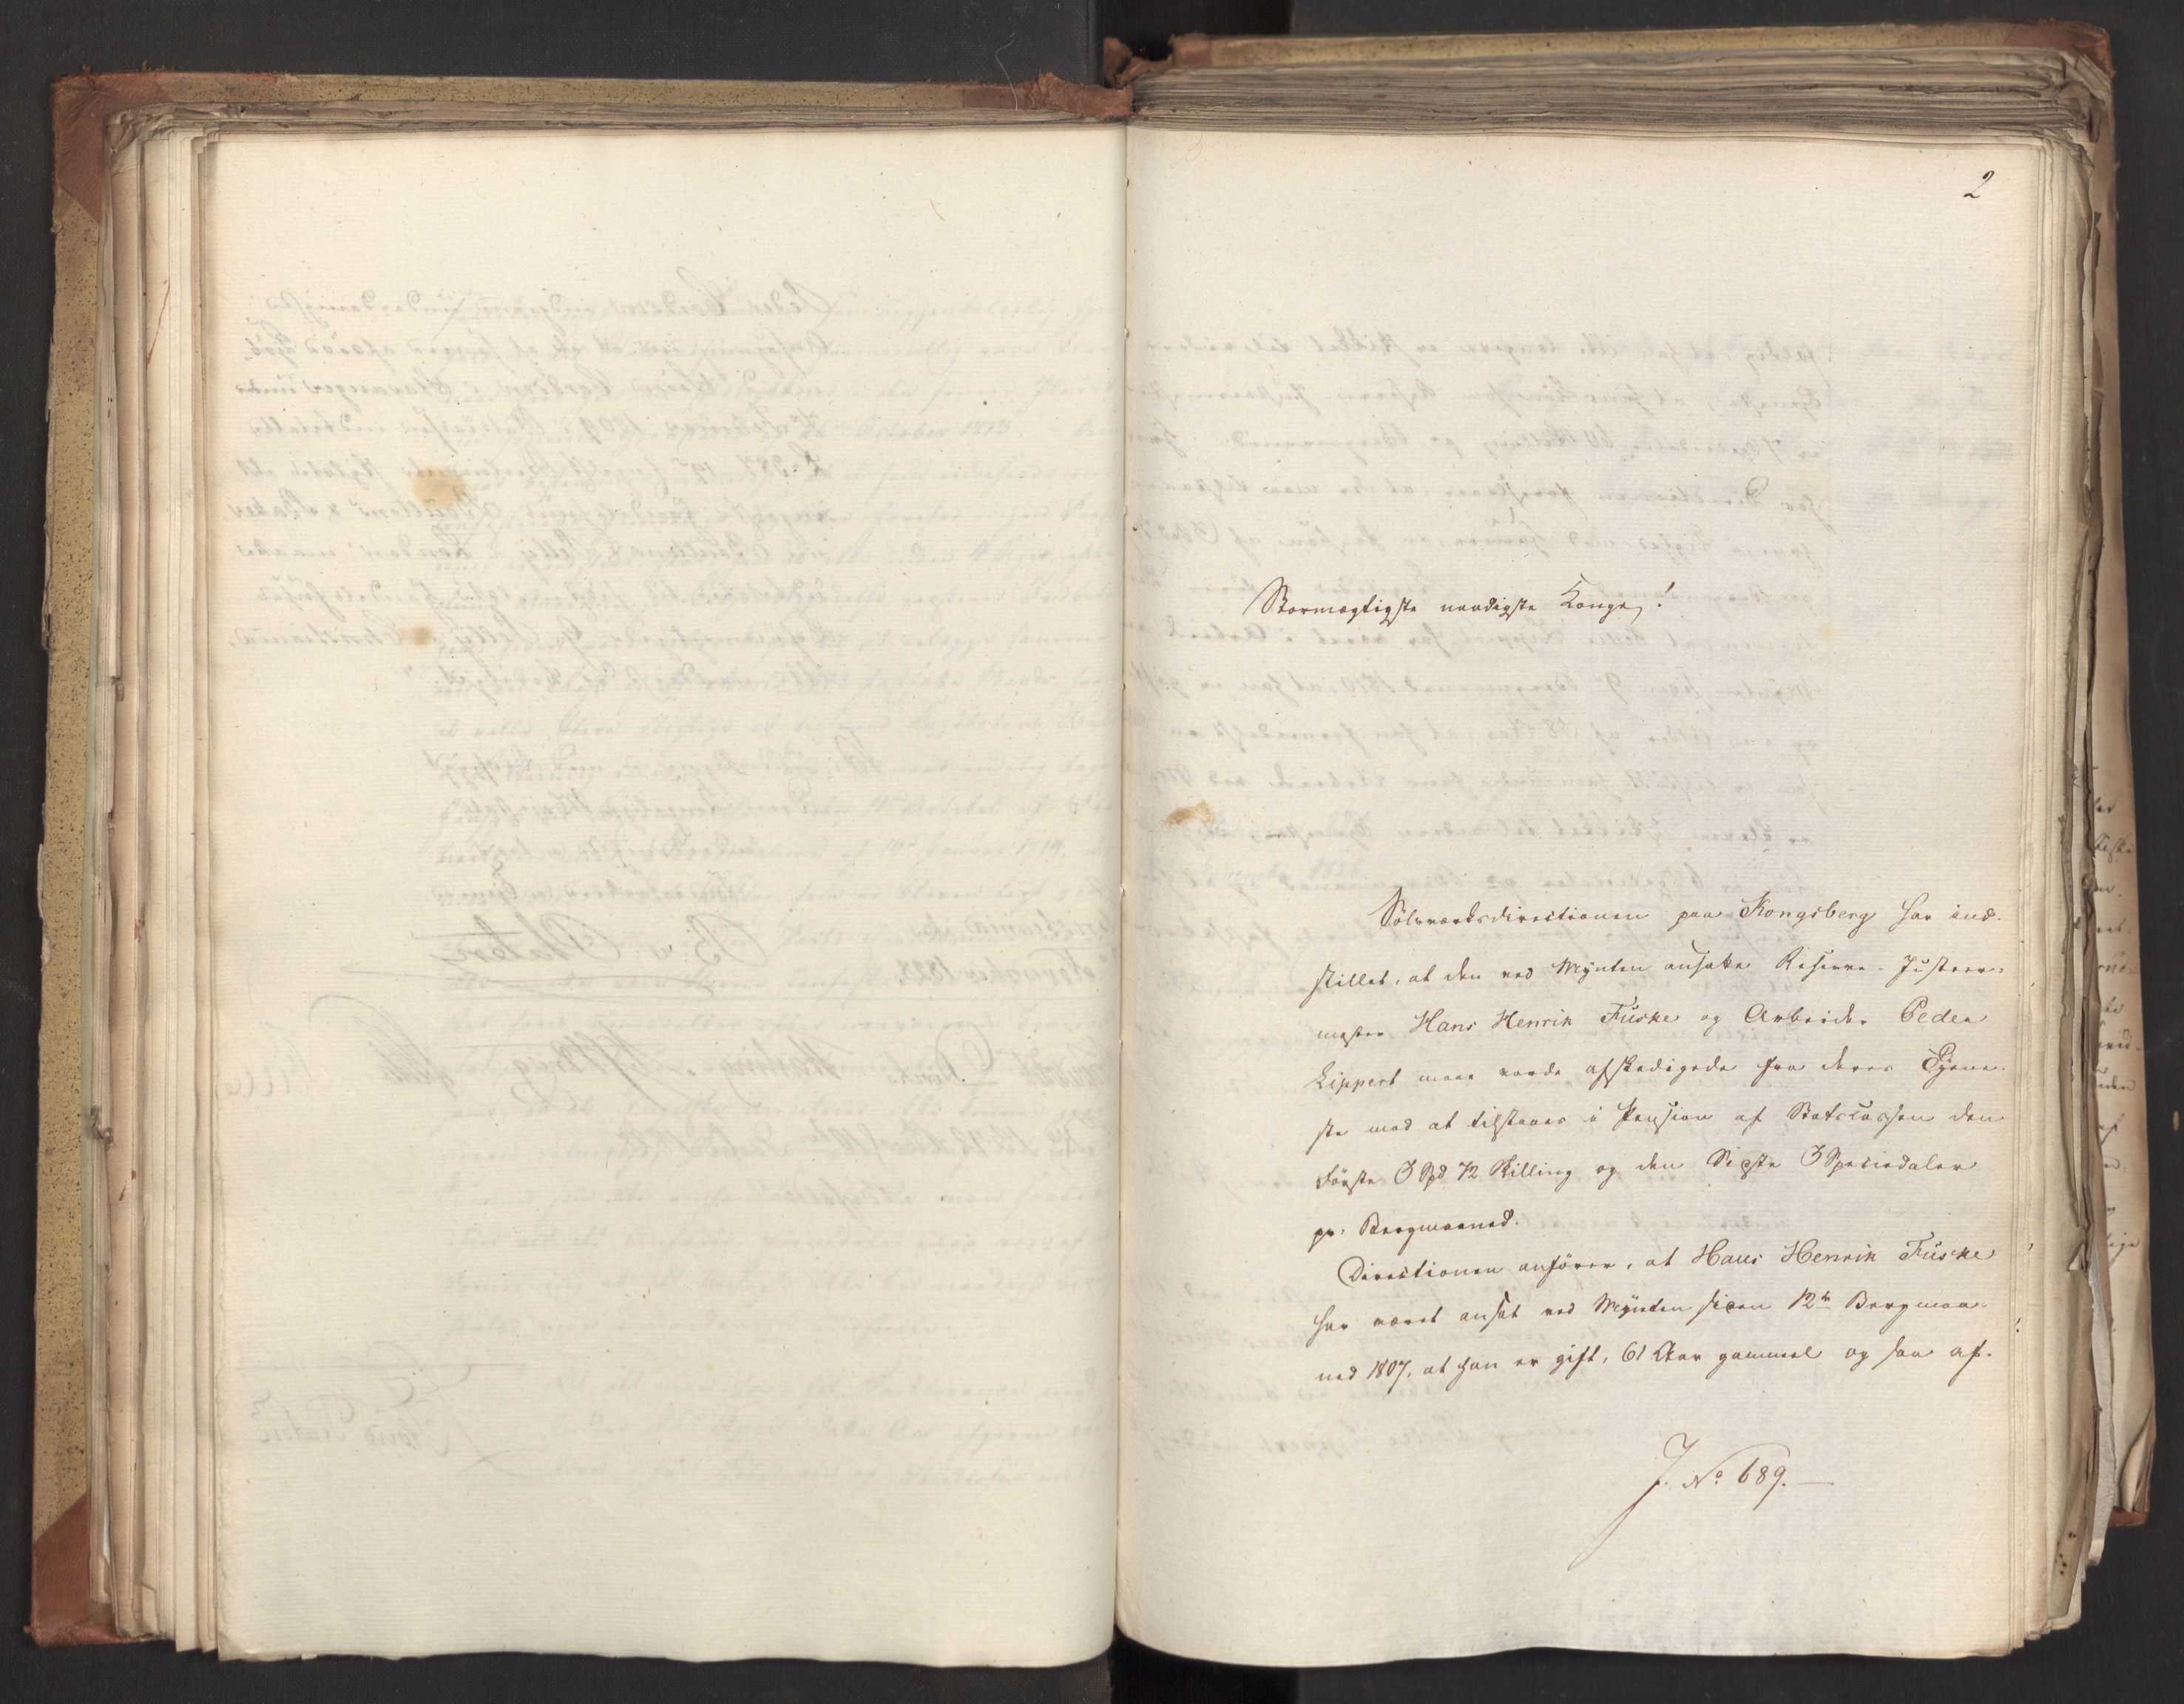 2
Stormægtigste naadigste Konge!
Sølvværksdirectionen paa Kongsberg har ind-
stillet, at den ved Mynten ansatte Reserve-Justeer-
mester Hans Henrik Fuske og Arbeider Peder
Lippert maae vorde afskedigede fra deres Tjene-
ste mod at tilstaaes i Pension af Statscassen den
Første 3 Spd 72 Skilling og den Sidste 3 Speciedaler
pr. Bergmaaned.
Directionen anfører, at Hans Henrik Fuske
har været ansat ved Mynten siden 12te Bergmaa-
ned 1807, at han er gift, 61 Aar gammel og saa af-
J. No 689.